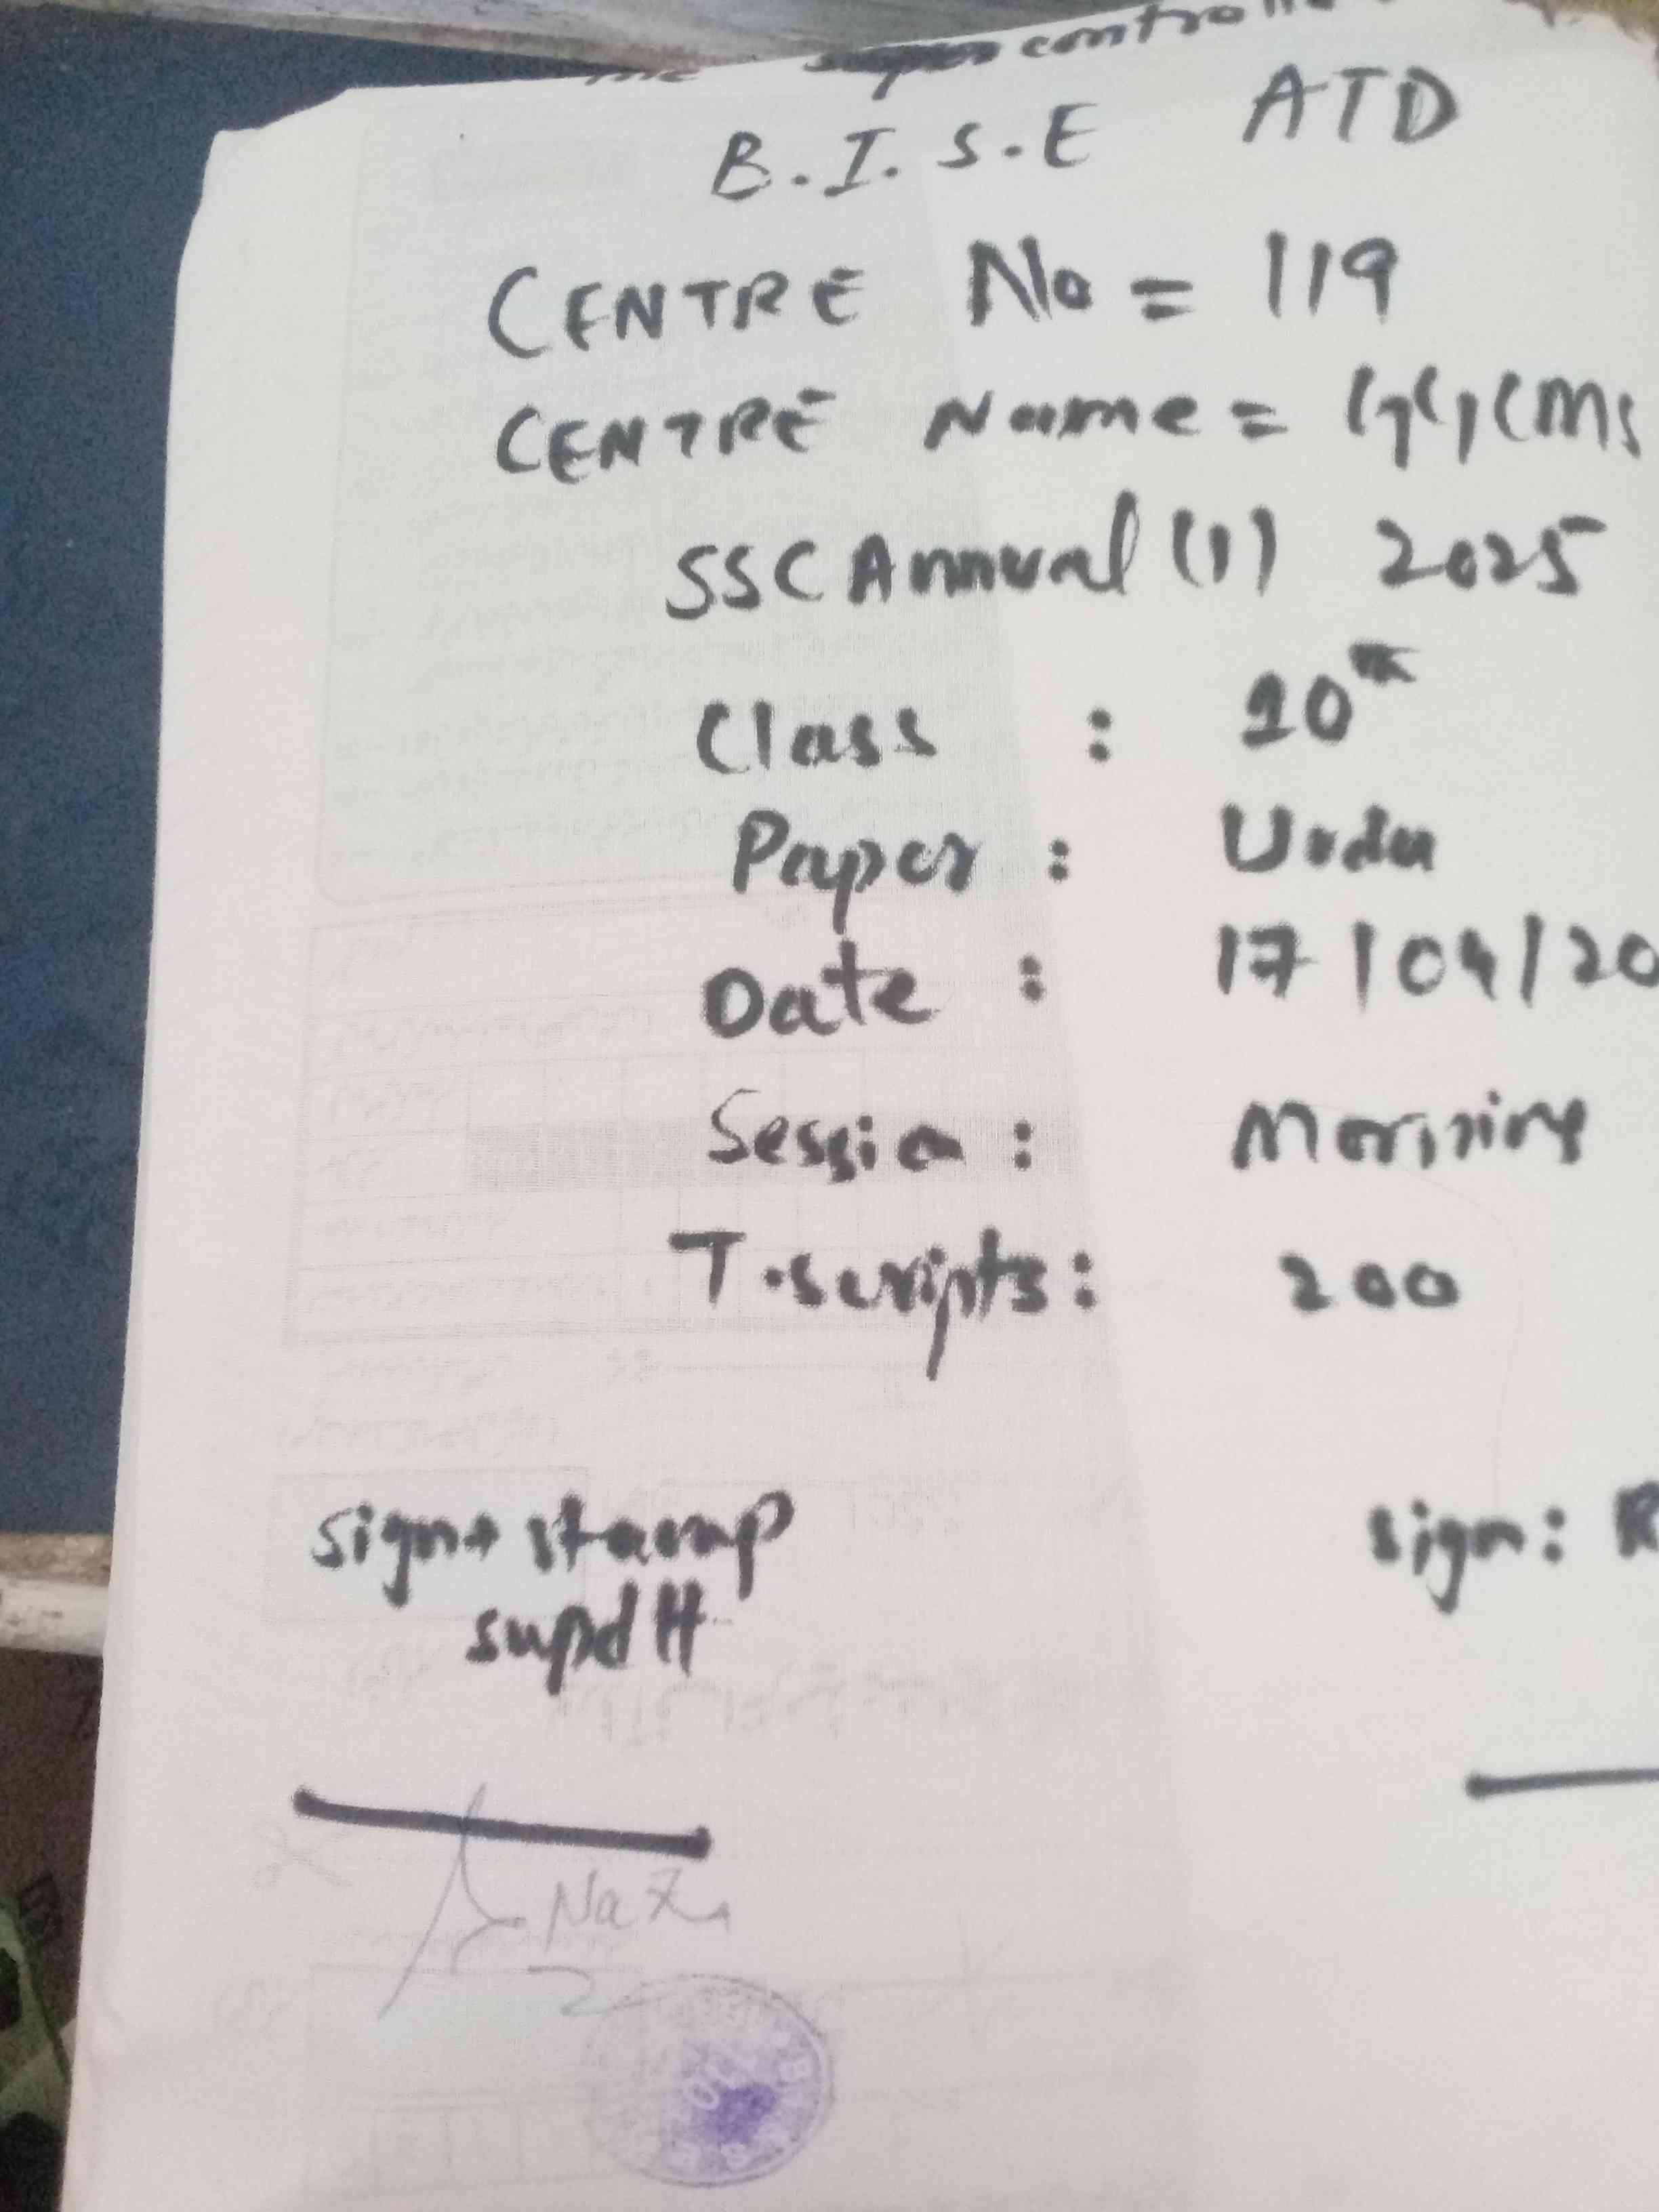 controlle
B.I.S.E ATD
CENTRE No = 119
CENTRE Name = GGCMS
SSC Annual (1) 2025
Class : 10th
Paper : Urdu
Date : 17/04/20
Session : Morning
T.scripts : 200
sign+stamp sign: R
supdtt
Naz